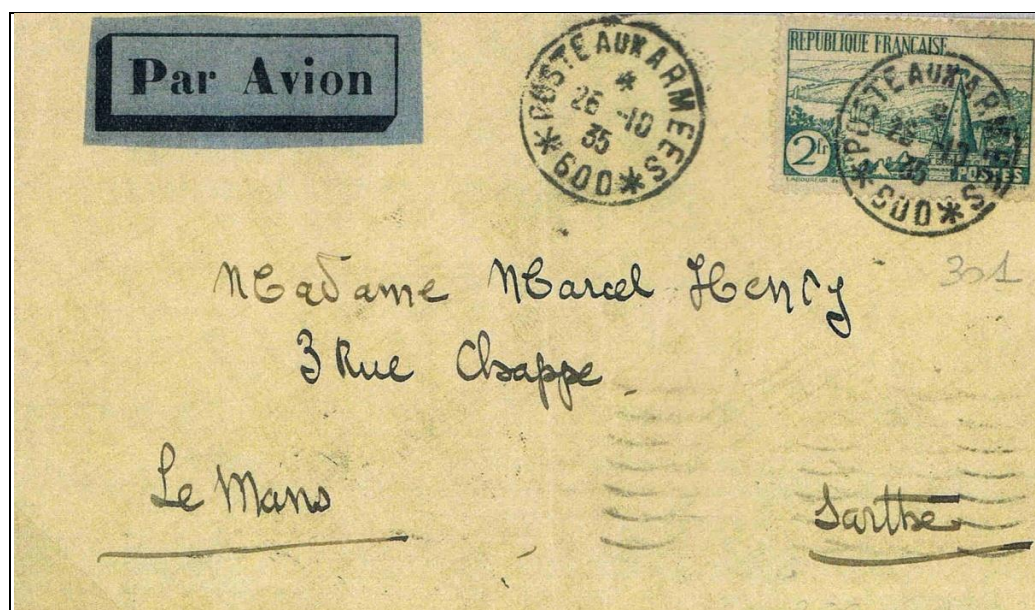 Par Avion
*POSTE AUX ARMEES*
*
26 -10
35
600
REPUBLIQUE FRANÇAISE
2fr
POSTES
*POSTE AUX ARMEES*
*
26 -10
35
600
301
Madame Marcel Henry
3 Rue Chappe
Le Mans
Sarthe